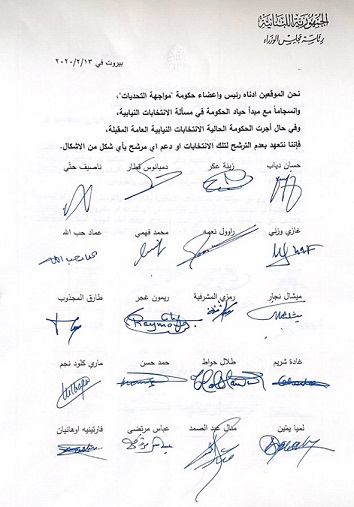 الجمهورية اللبنانية
رئاسة مجلس الوزراء
بيروت في ٢٠٢٠/٢/١٣
نحن الموقعين ادناه رئيس واعضاء حكومة "مواجهة التحديات"،
وانسجاماً مع مبدأ حياد الحكومة في مسألة الانتخابات النيابية،
وفي حال أجرت الحكومة الحالية الانتخابات النيابية العامة المقبلة،
فإننا نتعهد بعدم الترشح لتلك الانتخابات او دعم اي مرشح بأي شكل من الاشكال.
حسان دياب زينة عكر دميانوس قطار ناصيف حتّي
غازي وزني راوول نعمه محمد فهمي عماد حب الله
ميشال نجار رمزي المشرفية ريمون غجر طارق المجذوب
Raymond
غادة شريم طلال حواط حمد حسن ماري كلود نجم
لميا يمّين منال عبد الصمد عباس مرتضى فارتينيه اوهانيان